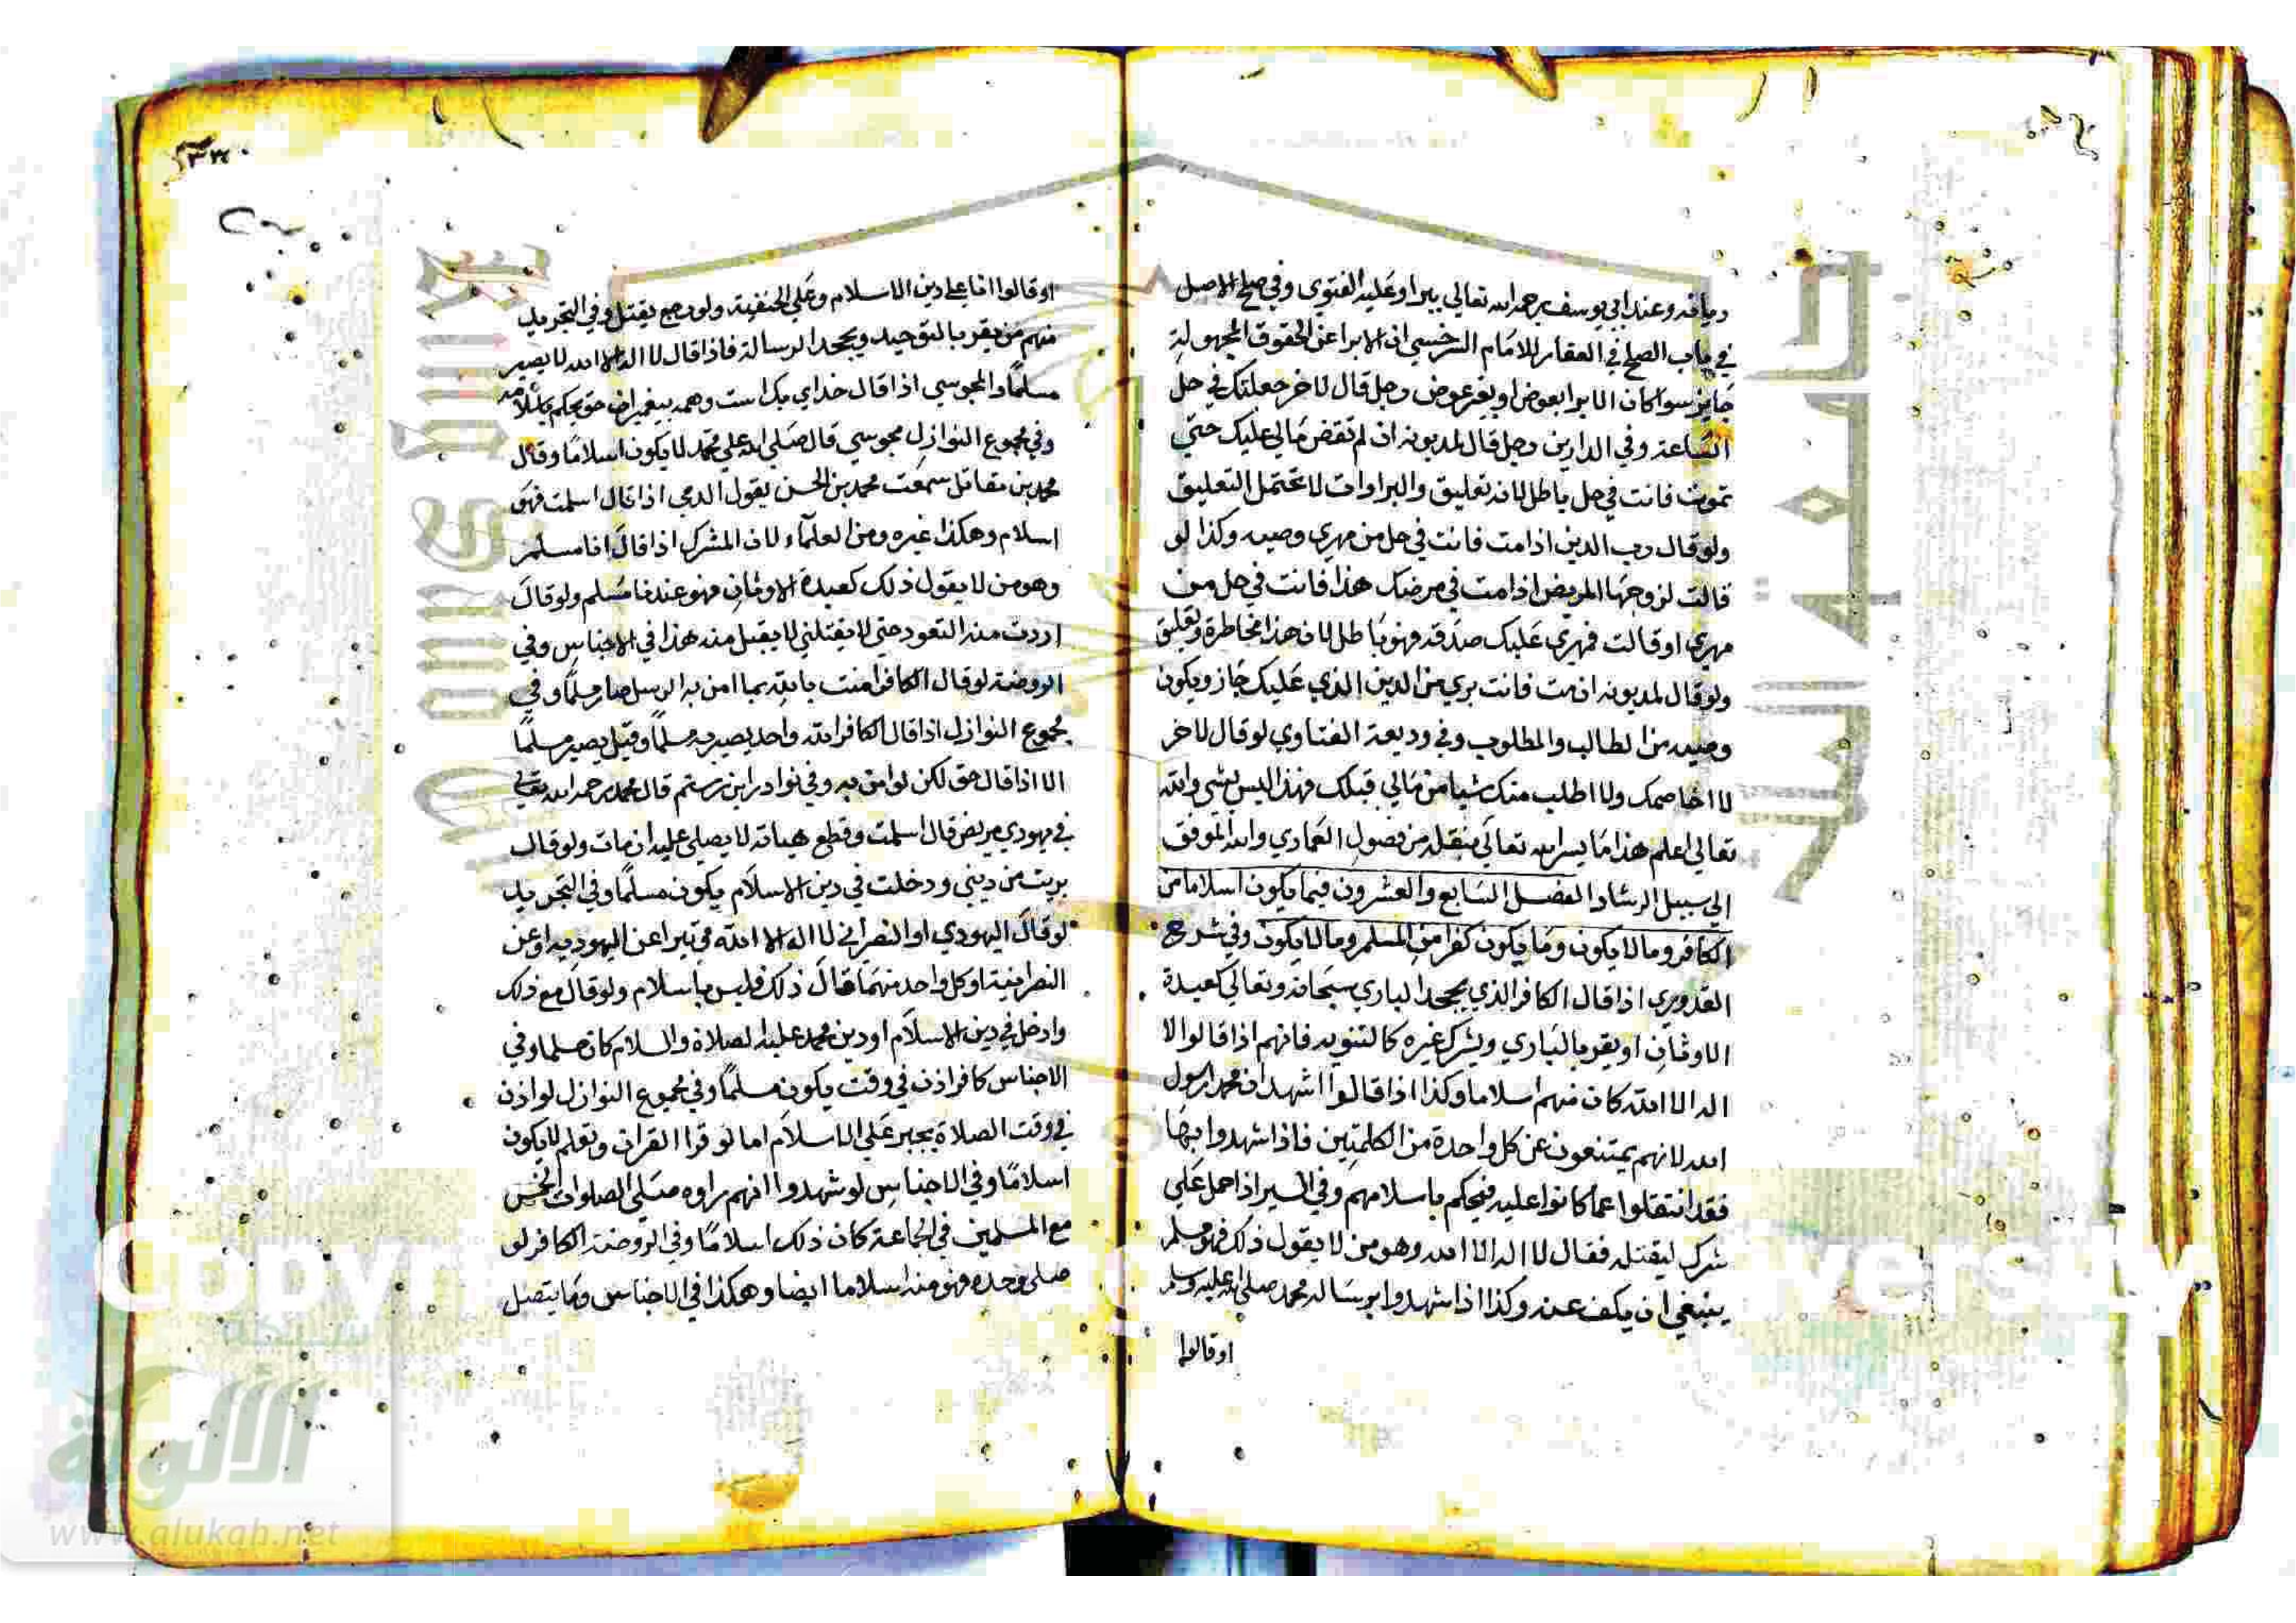 ديانة وعند ابي يوسف رحمه الله تعالي يبرا وعليه الفتوي وفي صلح الاصل
في باب الصلح في العقار للامام السرخسي ان الابرا عن الحقوق المجهولة
جايز سوا كان الابرا بعوض او بغير عوض رجل قال لاخر جعلتك في حل
الساعة وفي الدارين رجل قال لمديونه ان لم تقض مالي عليك حتي
تموت فانت في حل باطل لانه تعليق والبراوات لا تحتمل التعليق
ولو قال رب الدين اذا مت فانت في حل من مهري وصيه وكذا لو
قالت لزوجها المريض اذا مت في مرضك هذا فانت في حل من
مهري او قالت فمهري عليك صدقه فهو باطل لان هذا مخاطرة وتعليق
ولو قال لمديونه ان مت فانت بري من الدين الذي عليك جاز ويكون
وصيه من الطالب والمطلوب وفي وديعة الفتاوي لو قال لاخر
لا اخاصمك ولا اطلب منك شيا من مالي قبلك فهذا ليس بشي والله
تعالي اعلم هذا ما يسر الله تعالي بنقله من فصول العمادي والله الموفق
الي سبيل الرشاد الفصل السابع والعشرون فيما يكون اسلاما من
الكافر وما لا يكون وما يكون كفرا من المسلم وما لا يكون وفي شرح
القدوري اذا قال الكافر الذي يجحد الباري سبحانه وتعالي كعبدة
الاوثان او يقر بالباري ويشرك غيره كالثنويه فانهم اذا قالوا لا
اله الا الله كان منهم اسلاما وكذا اذا قالوا اشهد ان محمد رسول
الله لانهم يمتنعون عن كل واحدة من الكلمتين فاذا شهدوا بها
فقد انتقلوا عما كانوا عليه فيحكم باسلامهم وفي السير اذا حمل علي
شرك ليقتله فقال لا اله الا الله وهو من لا يقول ذلك فهو مسلم
ينبغي ان يكف عنه وكذا اذا شهدوا برسالة محمد صلي الله عليه وسلم
او قالوا
او قالوا انا علي دين الاسلام وعلي الحنفية ولو رجع يقتل وفي التجريد
منهم من يقر بالتوحيد ويجحد الرسالة فاذا قال لا اله الا الله لا يصير
مسلما والمجوسي اذا قال خداي يك است وهمه بيغمبران حق يحكم باسلامه
وفي مجموع النوازل مجوسي قال صلي الله علي محمد لا يكون اسلاما وقال
محمد بن مقاتل سمعت محمد بن الحسن يقول الذمي اذا قال اسلمت فهو
اسلام وهكذا غيره ومن العلماء لان المشرك اذا قال انا مسلم
وهو من لا يقول ذلك كعبدة الاوثان فهو عندنا مسلم ولو قال
اردت منه التعود حتي لا يقتلني لا يقبل منه هذا في الاجناس وفي
الروضة لو قال الكافر امنت بالله بما امن به الرسل صار مسلما وفي
مجموع النوازل اذا قال الكافر الله واحد يصير به مسلما وقيل يصير مسلما
الا اذا قال حق لكن لو امن به وفي نوادر ابن رستم قال محمد رحمه الله تعالي
في يهودي مريض قال اسلمت وقطع هيانه لا يصلي عليه ان مات ولو قال
بريت من ديني ودخلت في دين الاسلام يكون مسلما وفي التجريد
لو قال اليهودي او النصراني لا اله الا الله متي تبرا عن اليهوديه او عن
النصرانية او كل واحد منهما قال ذلك فليس باسلام ولو قال مع ذلك
وادخل في دين الاسلام او دين محمد عليه الصلاة والسلام كان مسلما وفي
الاجناس كافر اذن في وقت يكون مسلما وفي مجموع النوازل لو اذن
في وقت الصلاة يجبر علي الاسلام اما لو قرا القران وتعلم لا يكون
اسلاما وفي الاجناس لو شهدوا انهم راوه صلي الصلوات الخمس
مع المسلمين في الجماعة كان ذلك اسلاما وفي الروضة الكافر لو
صلي وحده فهو منه اسلاما ايضا وهكذا في الاجناس ومما يتصل
جامعة الملك
شبكة
الألوكة
www.alukah.net